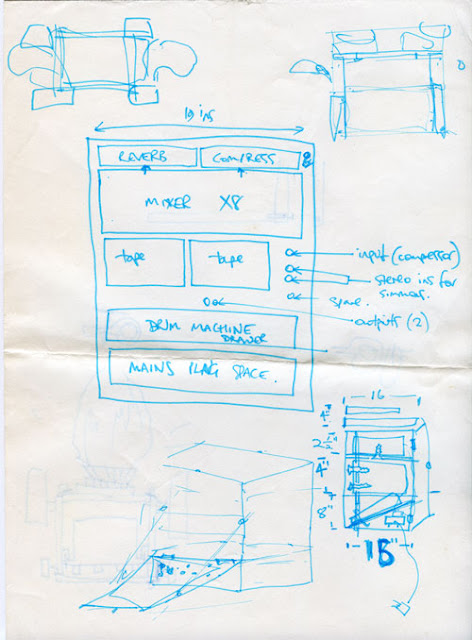 19 ins
REVERB
COMPRESS
MIXER X8
tape
tape
input (compressor)
stereo ins for
simmons.
spare.
outputs (2)
DRUM MACHINE
DRAWER
MAINS PLUG SPACE.
16
4"
2½"
4"
8"